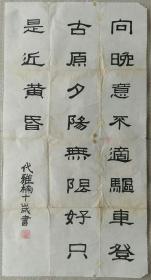 向晚意不適驅車登
古原夕陽無限好只
是近黃昏
代雅楠十歲書